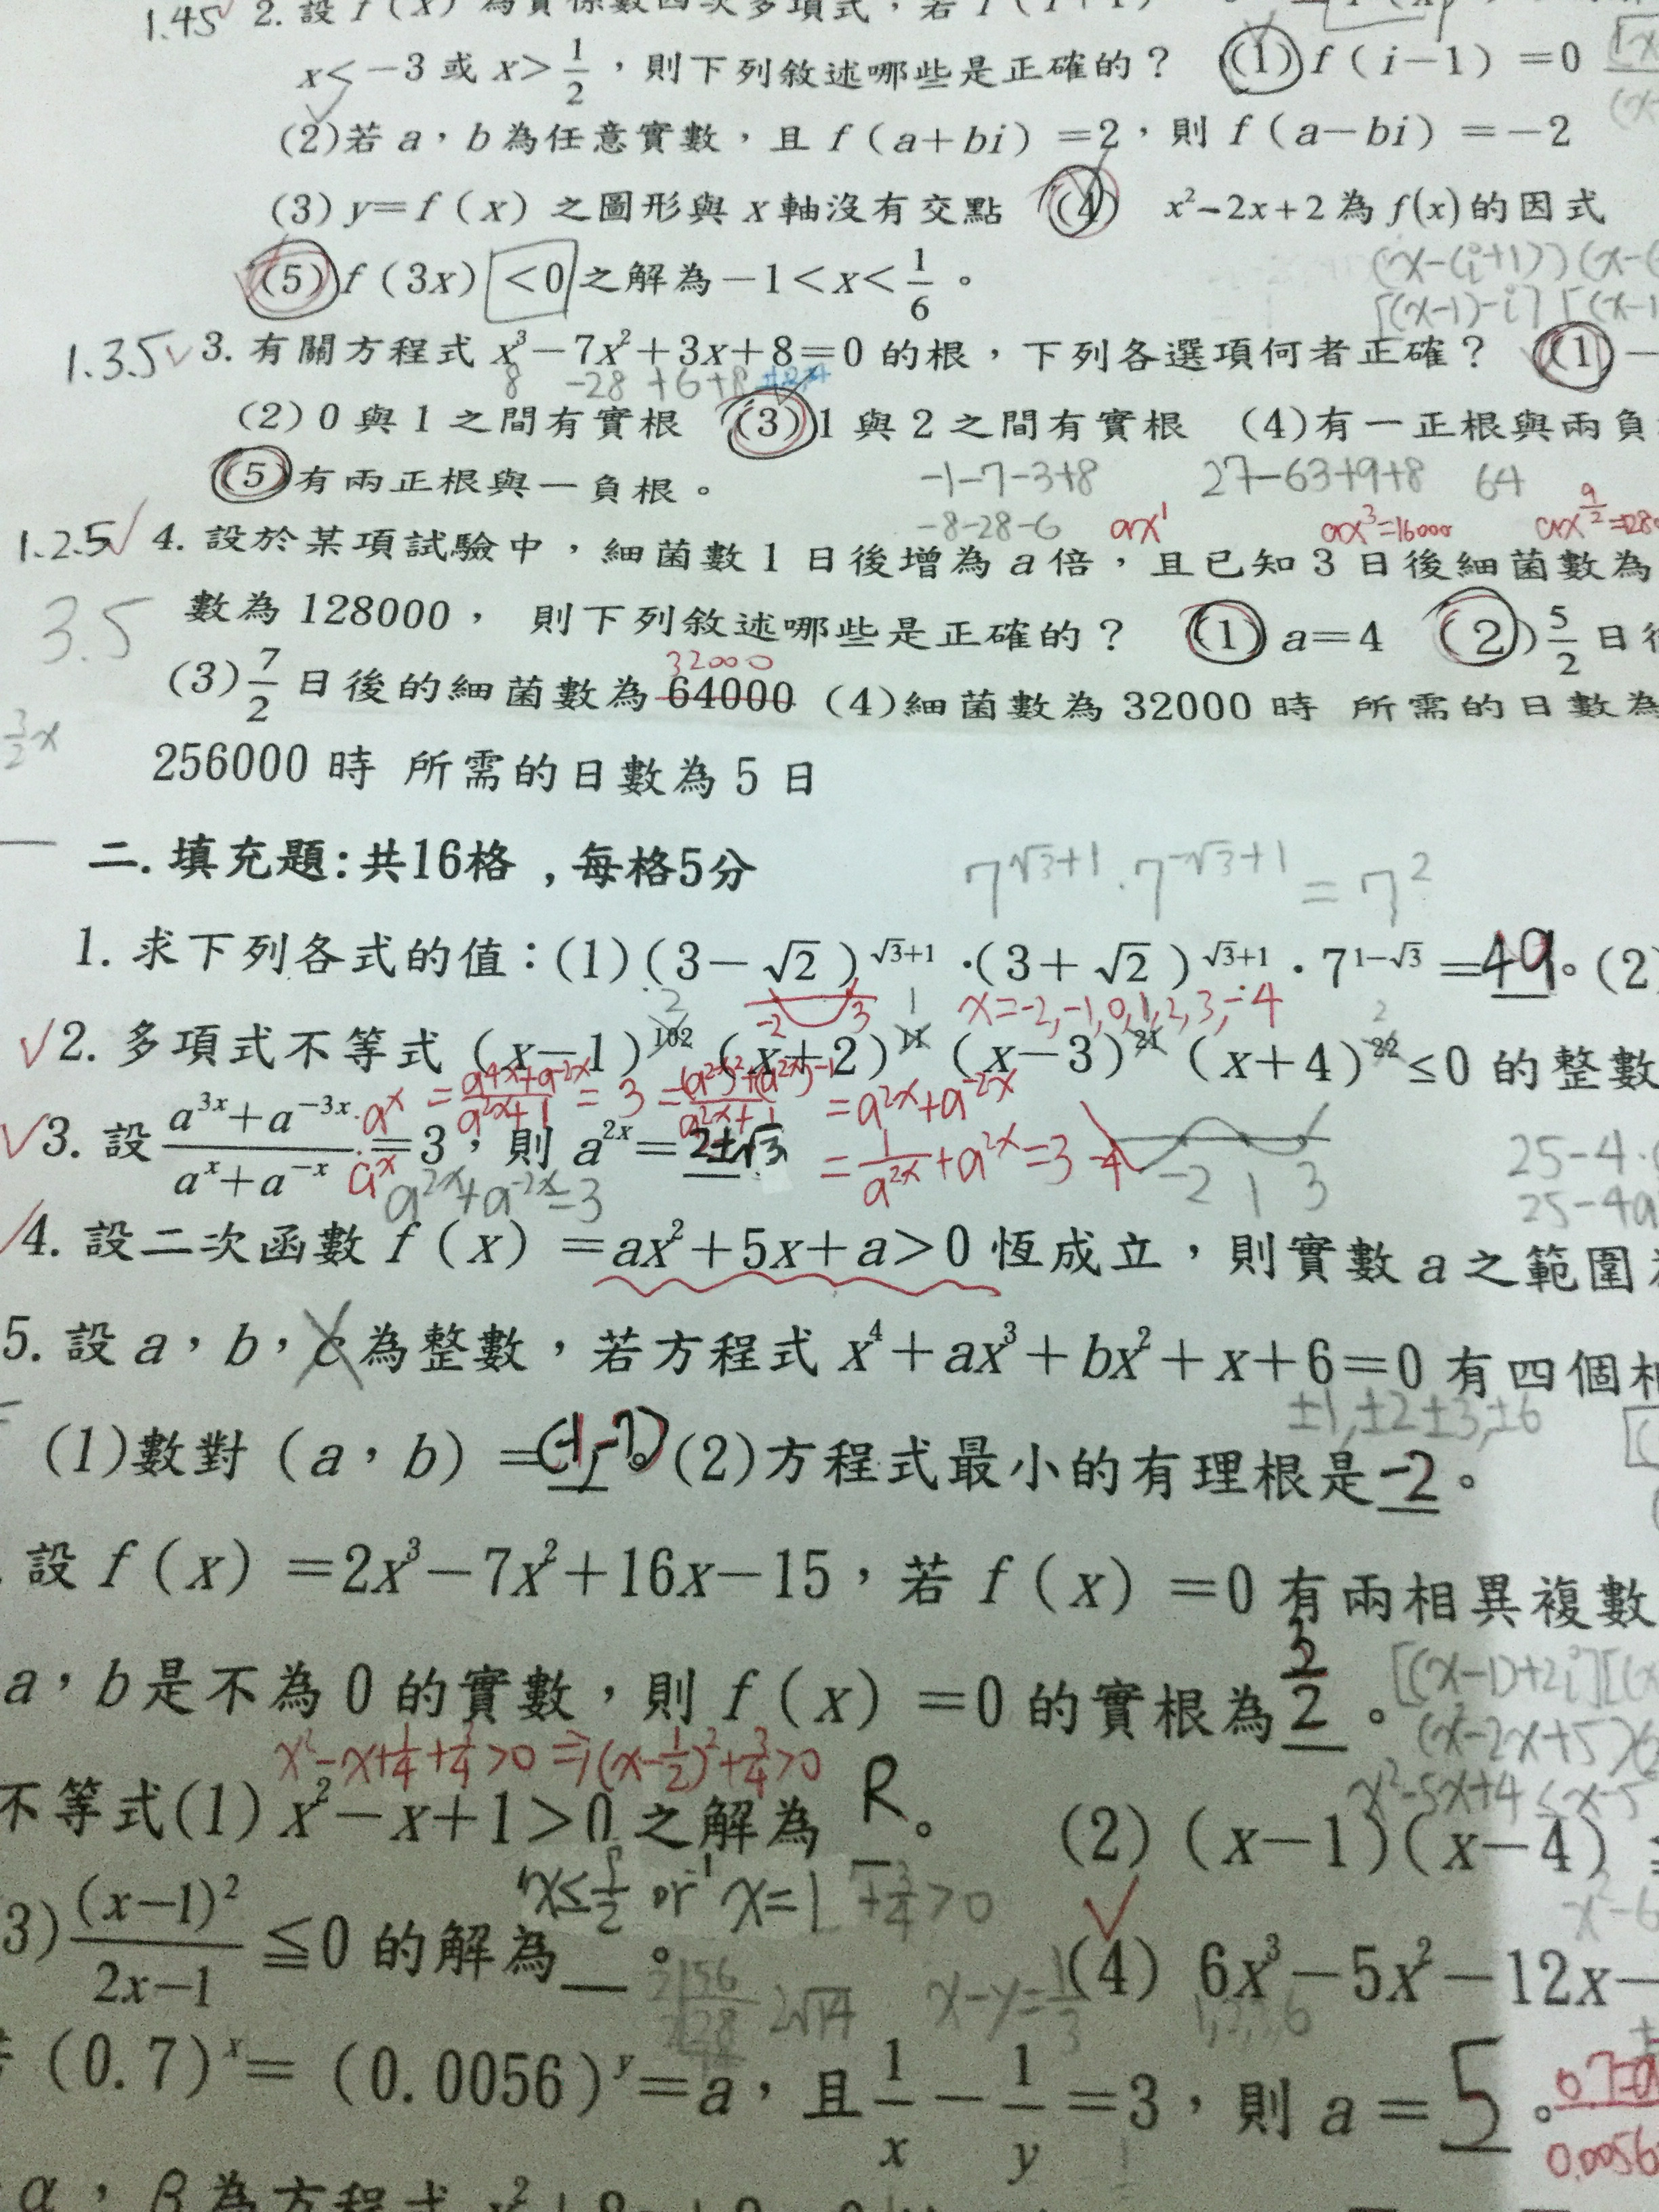 1.45 2. 設 f(x) 為實係數四次多項式,若
x<-3 或 x> 1/2 ,則下列敘述哪些是正確的? (1) f(i-1)=0
(2)若 a,b 為任意實數,且 f(a+bi)=2,則 f(a-bi)=-2
(3) y=f(x) 之圖形與 x 軸沒有交點 (4) x²-2x+2 為 f(x) 的因式
(x-(i+1))(x-(
(5) f(3x) <0 之解為 -1<x< 1/6 。
[(x-1)-i][(x-1
1.3.5 3. 有關方程式 x³-7x²+3x+8=0 的根,下列各選項何者正確? (1)
8 -28 +6+8
(2) 0 與 1 之間有實根 (3) 1 與 2 之間有實根 (4)有一正根與兩負
(5)有兩正根與一負根。 -1-7-3+8 27-63+9+8 64
-8-28-6 ax¹ ax³=16000
1.2.5 4. 設於某項試驗中,細菌數 1 日後增為 a 倍,且已知 3 日後細菌數為
3.5 數為 128000, 則下列敘述哪些是正確的? (1) a=4 (2) 5/2 日後
32000
(3) 7/2 日後的細菌數為 64000 (4)細菌數為 32000 時 所需的日數為
3/2 x
256000 時 所需的日數為 5 日
二.填充題:共16格,每格5分 7^(√3+1)·7^(-√3+1) = 7²
1. 求下列各式的值:(1)(3-√2)^(√3+1)·(3+√2)^(√3+1)·7^(1-√3)=49。(2)
2 -2 3 1 x=-2,-1,0,1,2,3,-4 2
2. 多項式不等式 (x-1)^102 (x+2)^11 (x-3)^21 (x+4)^22 ≤0 的整數
3. 設 (a^3x+a^-3x)/(a^x+a^-x) =3,則 a^2x=2±√3
·a^x = (a^4x+a^-2x)/(a^2x+1) = 3 = a^2x+a^-2x
= 1/a^2x + a^2x=3 -4 -2 1 3
a^2x+a^-2x=3
25-4
4. 設二次函數 f(x)=ax²+5x+a>0 恆成立,則實數 a 之範圍
5. 設 a,b,c 為整數,若方程式 x⁴+ax³+bx²+x+6=0 有四個相
±1,±2±3,±6
(1)數對 (a,b)=(-1,-7)。(2)方程式最小的有理根是-2。
設 f(x)=2x³-7x²+16x-15,若 f(x)=0 有兩相異複數
a,b是不為 0 的實數,則 f(x)=0 的實根為 3/2 。 [(x-1)+2i][(x
(x²-2x+5)(
x²-x+1/4+3/4>0 ⇒(x-1/2)²+3/4>0
x²-5x+4≤x-5
不等式(1) x²-x+1>0 之解為 R。 (2) (x-1)(x-4) ≤
x≤1/2 or x=1 +3/4>0 x²-6
3) (x-1)²/(2x-1) ≦0 的解為__。 (4) 6x³-5x²-12x-
2√14 x-y=1/3
(0.7)^x=(0.0056)^y=a,且 1/x - 1/y =3,則 a=5。
0.0056
α,β為方程式